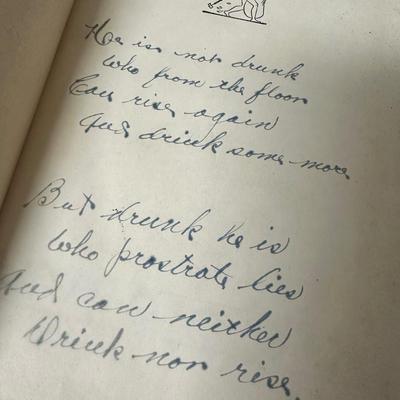 He is not drunk
who from the floor
Can rise again
And drink some more
But drunk he is
who prostrate lies
And can neither
Drink nor rise.